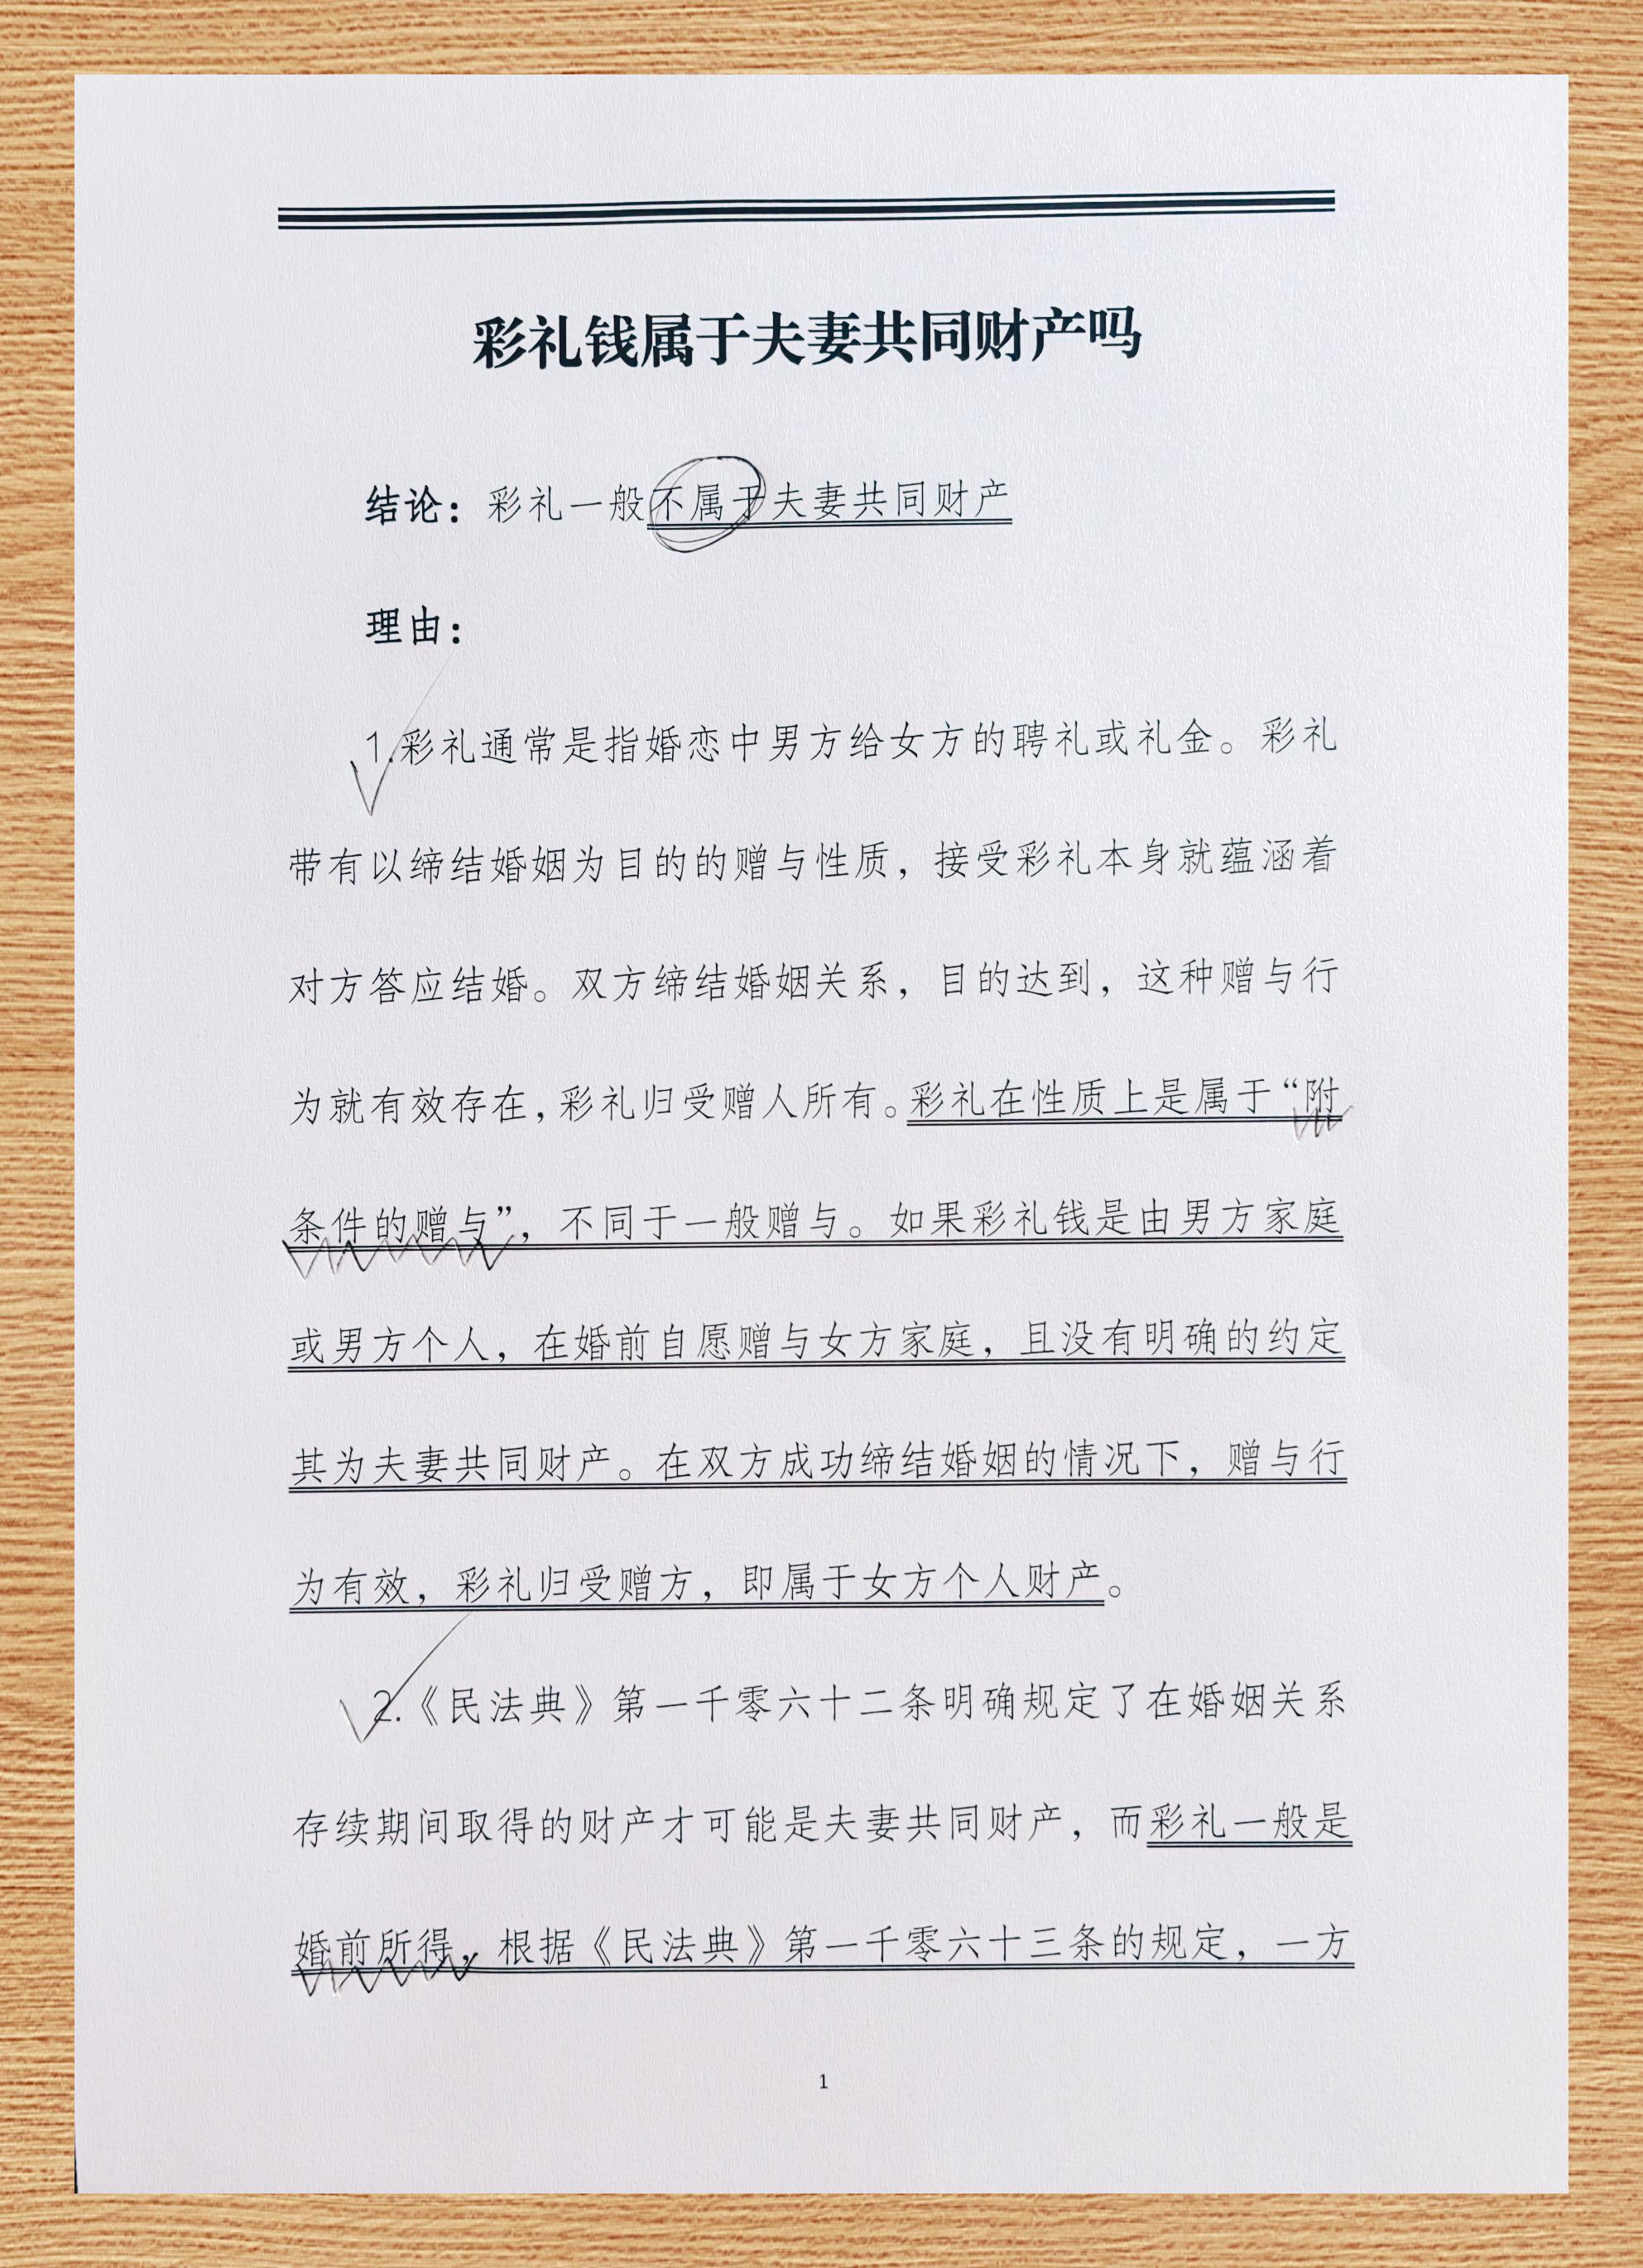 彩礼钱属于夫妻共同财产吗
结论：彩礼一般不属于夫妻共同财产
理由：
1.彩礼通常是指婚恋中男方给女方的聘礼或礼金。彩礼
带有以缔结婚姻为目的的赠与性质，接受彩礼本身就蕴涵着
对方答应结婚。双方缔结婚姻关系，目的达到，这种赠与行
为就有效存在，彩礼归受赠人所有。彩礼在性质上是属于“附
条件的赠与”，不同于一般赠与。如果彩礼钱是由男方家庭
或男方个人，在婚前自愿赠与女方家庭，且没有明确的约定
其为夫妻共同财产。在双方成功缔结婚姻的情况下，赠与行
为有效，彩礼归受赠方，即属于女方个人财产。
2.《民法典》第一千零六十二条明确规定了在婚姻关系
存续期间取得的财产才可能是夫妻共同财产，而彩礼一般是
婚前所得，根据《民法典》第一千零六十三条的规定，一方
1